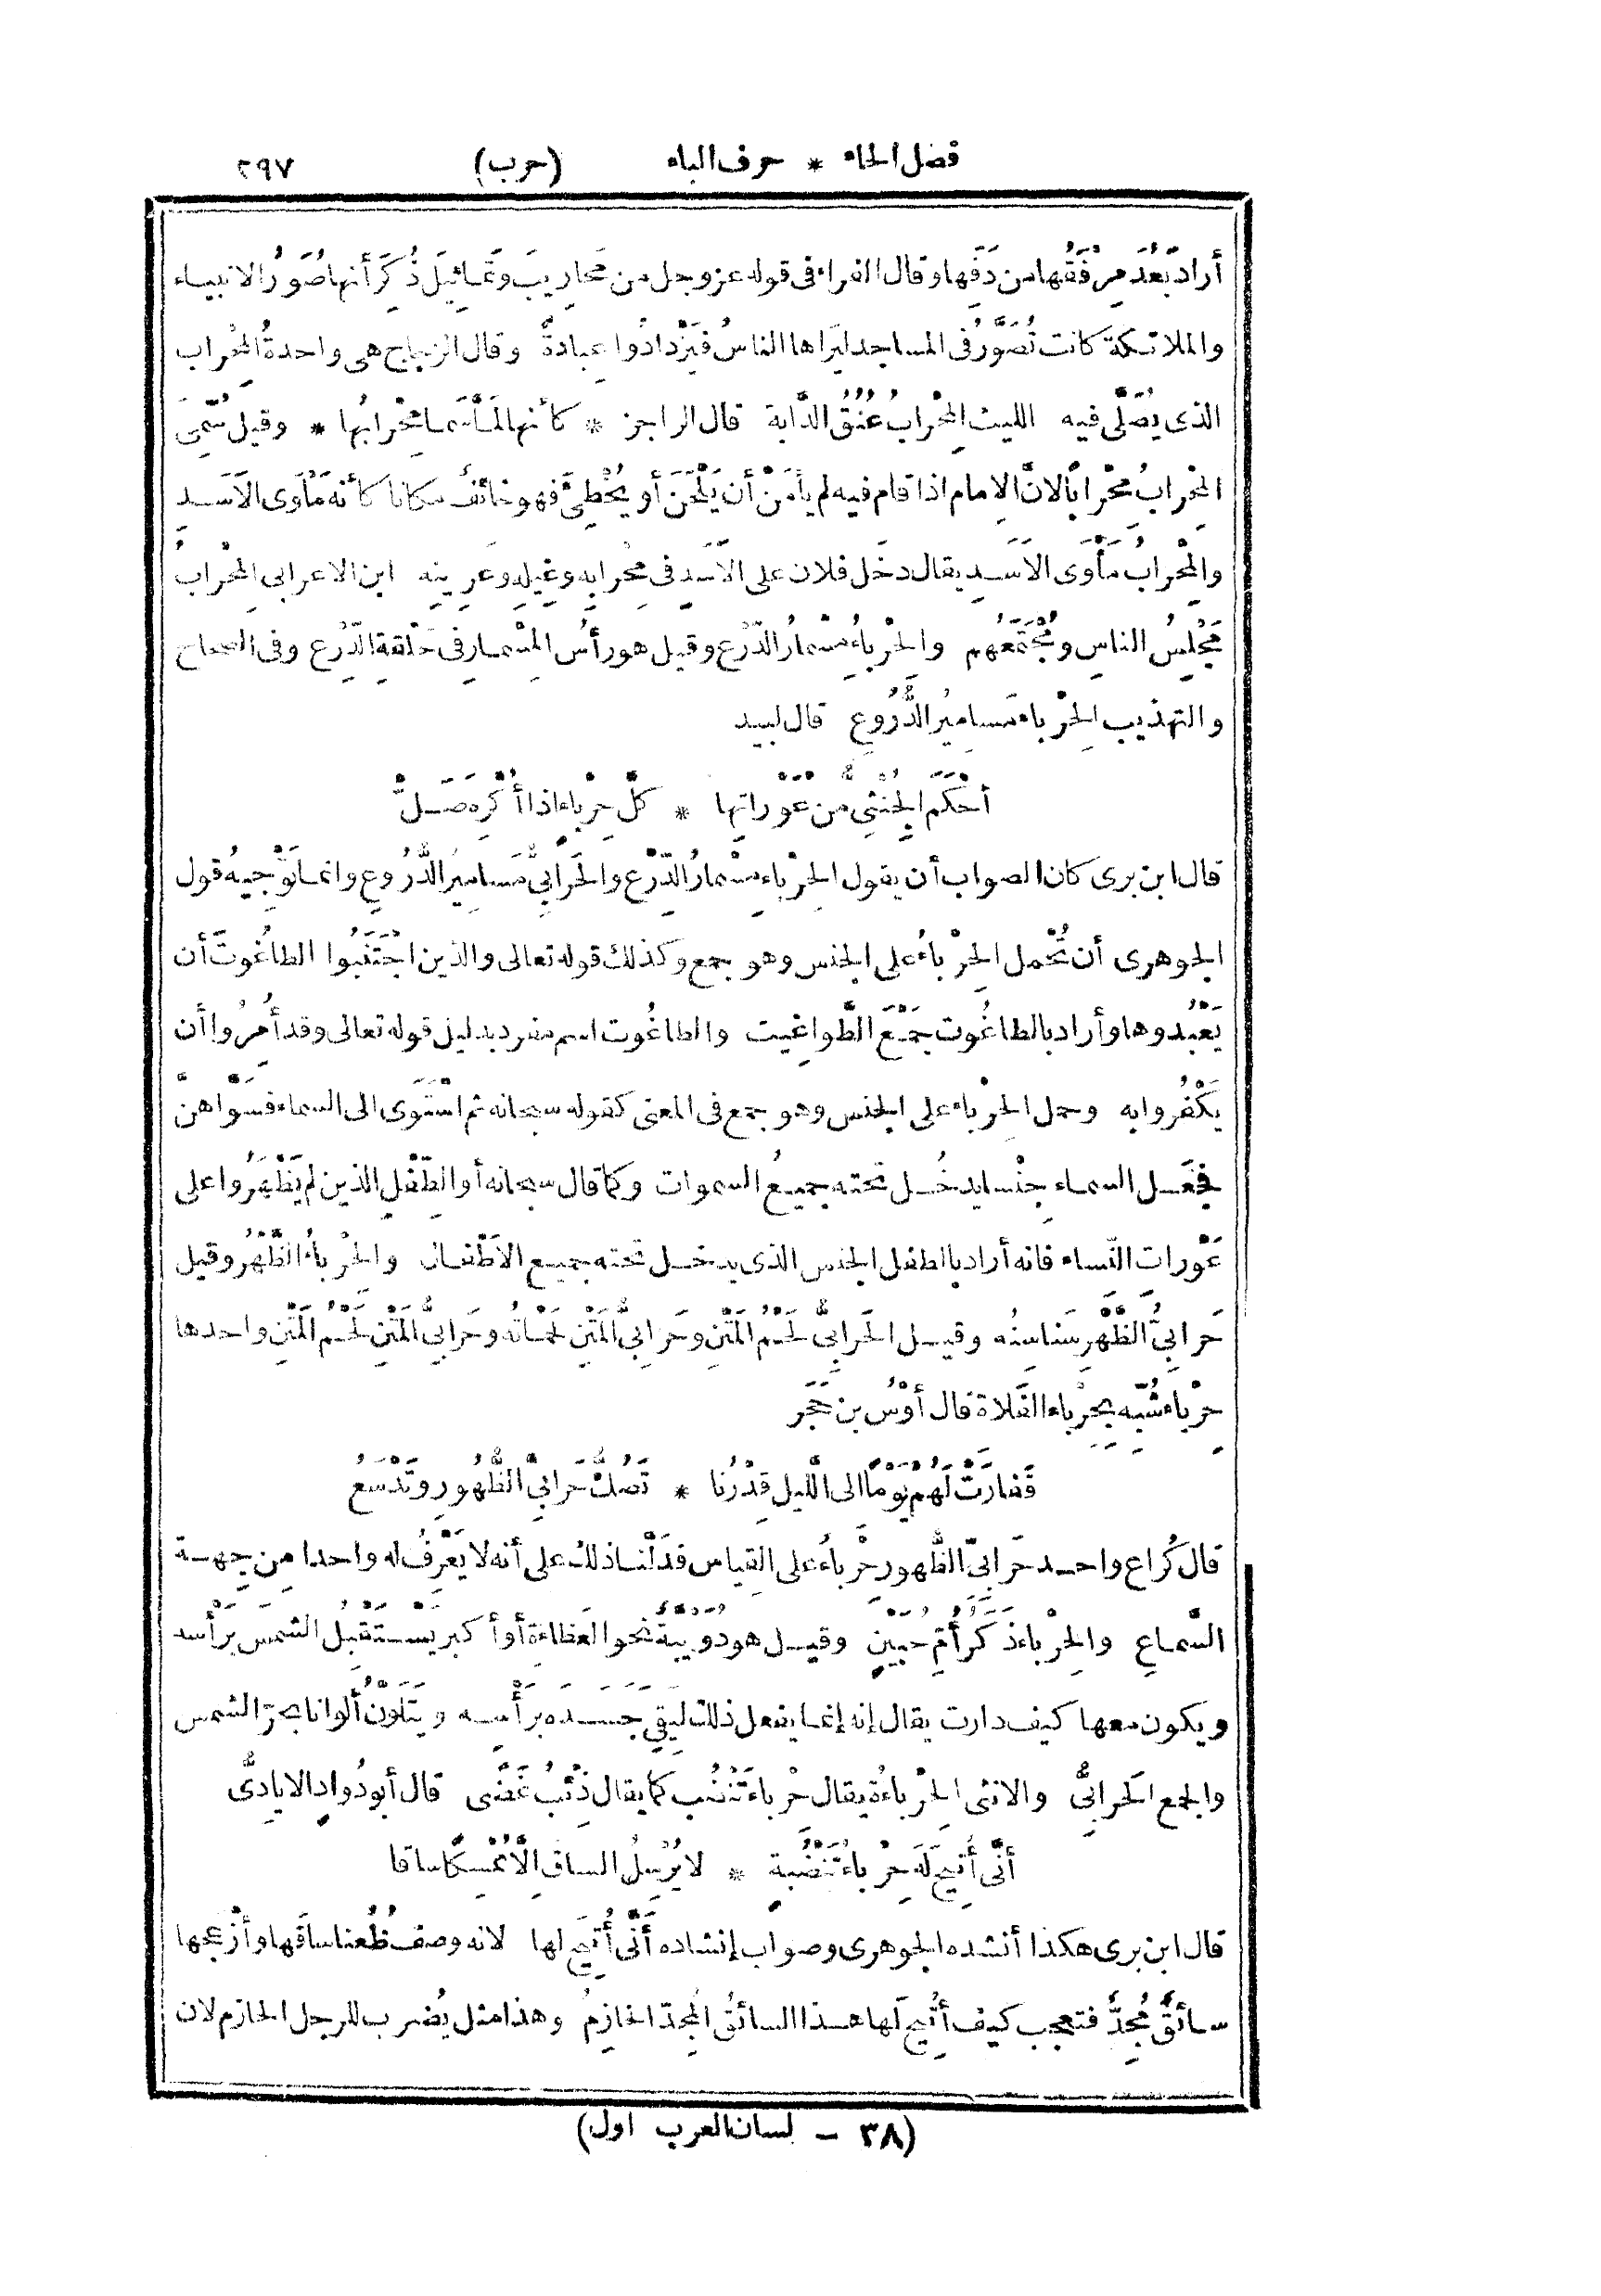 فصل الحاء * حرف الباء (حرب) ٢٩٧
أراد بُعْدَ مِرْفَقِها من دَفِّها وقال الفراء فى قوله عز وجل من مَحارِيبَ وتَماثِيلَ ذُكِرَ أنها صُوَرُ الانبياء
والملائكة كانت تُصَوَّرُ فى المساجد ليَراها الناسُ فيَزْدادُوا عِبادةً وقال الزجاج هى واحدةُ المِحْراب
الذى يُصَلَّى فيه الليث المِحْرابُ عُنُقُ الدَّابة قال الراجز * كأنها لَمَّا سَما مِحْرابُها * وقيل سُمِّىَ
المِحْرابُ مِحْراباً لانَّ الإِمام اذا قام فيه لم يأمَنْ أن يَلْحَنَ أو يُخْطِئَ فهو خائفٌ مكانا كأنه مَأْوَى الاَسَدِ
والمِحْرابُ مَأْوَى الاَسَدِ يقال دخَل فلان على الاَسَدِ فى مِحْرابِه وغِيلِه وعَرِينِه ابن الاعرابى المِحْرابُ
مَجْلِسُ الناسِ ومُجْتَمَعُهم والحِرْباءُ مِسْمارُ الدِّرْع وقيل هو رأْسُ المِسْمارِ فى حَلْقةِ الدِّرْعِ وفى الصحاح
والتهذيب الحِرْباء مَسامِيرُ الدُّرُوعِ قال لبيد
أَحْكَمَ الجِنْثِىُّ من عَوْراتِها * كلَّ حِرْباءٍ اذا أُكْرِهَ صَلّْ
قال ابن برى كان الصواب أن يقول الحِرْباء مِسْمارُ الدِّرْعِ والحَرابِىُّ مَسامِيرُ الدُّرُوعِ وانما تَوْجِيهُ قول
الجوهرى أن تُحْمل الحِرْباءُ على الجنس وهو جمع وكذلك قوله تعالى والذين اجْتَنَبُوا الطاغُوتَ أن
يَعْبُدوها وأراد بالطاغُوت جَمْعَ الطَّواغِيت والطاغُوت اسم مفرد بدليل قوله تعالى وقد أُمِرُوا أن
يَكْفُروا به وحمل الحِرْباء على الجنس وهو جمع فى المعنى كقوله سبحانه ثم اسْتَوَى الى السماء فسَوَّاهنَّ
فجَعَل السماء جِنْسا يدخُل تحته جميعُ السموات وكما قال سبحانه أو الطِّفْلِ الذين لم يَظْهَرُوا على
عَوْراتِ النِّساء فانه أراد بالطفل الجنس الذى يدخل تحته جميع الاَطْفال والحِرْباءُ الظَّهْرُ وقيل
حَرابِىُّ الظَّهْرِ سَناسِنُه وقيل الحَرابِىُّ لَحْمُ المَتْنِ وحَرابِىُّ المَتْنِ لَحْماتُه وحَرابِىُّ المَتْنِ لَحْمُ المَتْنِ واحدها
حِرْباء شُبِّه بِحِرْباءِ الفَلاة قال أَوْسُ بن حَجَر
فَفارَتْ لَهُم يَوْماً الى اللَّيلِ قِدْرُنا * تَصُكُّ حَرابِىَّ الظُّهُورِ وتَدْسَعُ
قال كُراع واحد حَرابِىِّ الظُّهورِ حِرْباءُ على القِياس فدَلَّنا ذلك على أنه لا يَعْرِفُ له واحدا مِن جِهة
السَّماعِ والحِرْباءُ ذَكَرُ أُمِّ حُبَيْنٍ وقيل هو دُوَيْبَّةٌ نحو العَظاءةِ أو أَكبر يَسْتَقْبِلُ الشمسَ برَأْسه
ويكون معها كيف دارت يقال إنه إنما يفعل ذلك ليَقِىَ جَسَدَه برَأْسِه ويَتَلَوَّنُ أَلوانا بحرّ الشمس
والجمع الحَرابِىُّ والانثى الحِرْباءةُ يقال حِرْباءُ تَنْضُب كما يقال ذِئْبُ غَضًى قال أبو دُوادٍ الايادىُّ
أَنَّى أُتِيحَ لَه حِرْباءُ تَنْضُبةٍ * لا يُرْسِلُ الساقَ الَّا مُمْسِكًا ساقا
قال ابن برى هكذا أنشده الجوهرى وصواب إنشاده أَنَّى أُتِيحَ لها لانه وصف ظُعُنا ساقَها وأَزْعجها
سائقٌ مُجِدٌّ فتعجب كيف أُتِيحَ لَها هذا السائقُ المُجِدّ الحازِمُ وهذا مثل يُضرب للرجل الحازم لان
(٣٨ - لسان العرب اول)